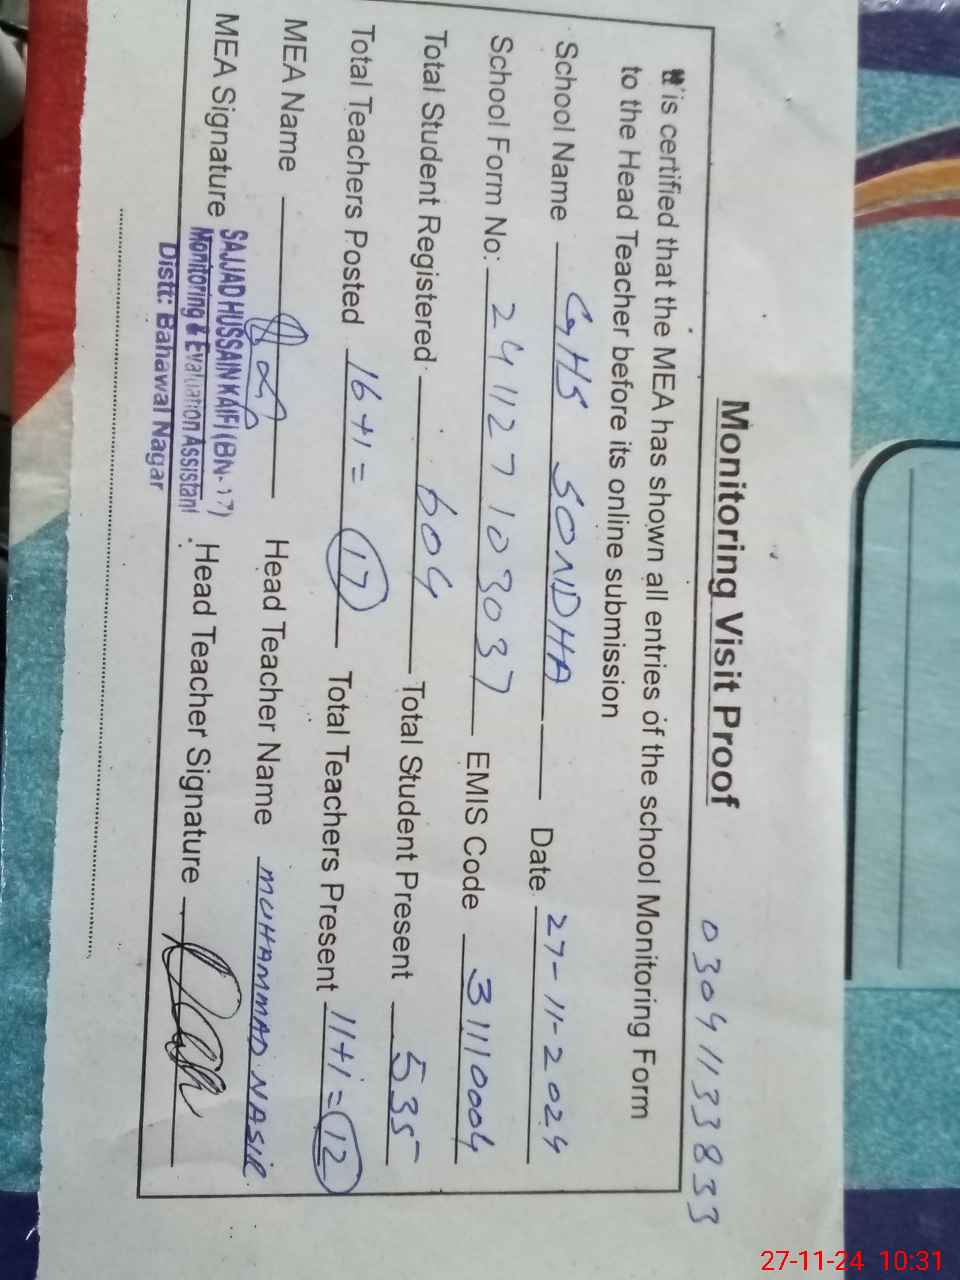 Monitoring Visit Proof 03041133833
It is certified that the MEA has shown all entries of the school Monitoring Form
to the Head Teacher before its online submission
School Name GHS SONDHA Date 27-11-2024
School Form No: 24112710 3037 EMIS Code 31110004
Total Student Registered 604 Total Student Present 535
Total Teachers Posted 16+1=17 Total Teachers Present 11+1=12
MEA Name Head Teacher Name MUHAMMAD NASIR
MEA Signature Head Teacher Signature
SAJJAD HUSSAIN KAIFI (BN-17)
Monitoring & Evaluation Assistant
Distt: Bahawal Nagar
27-11-24 10:31